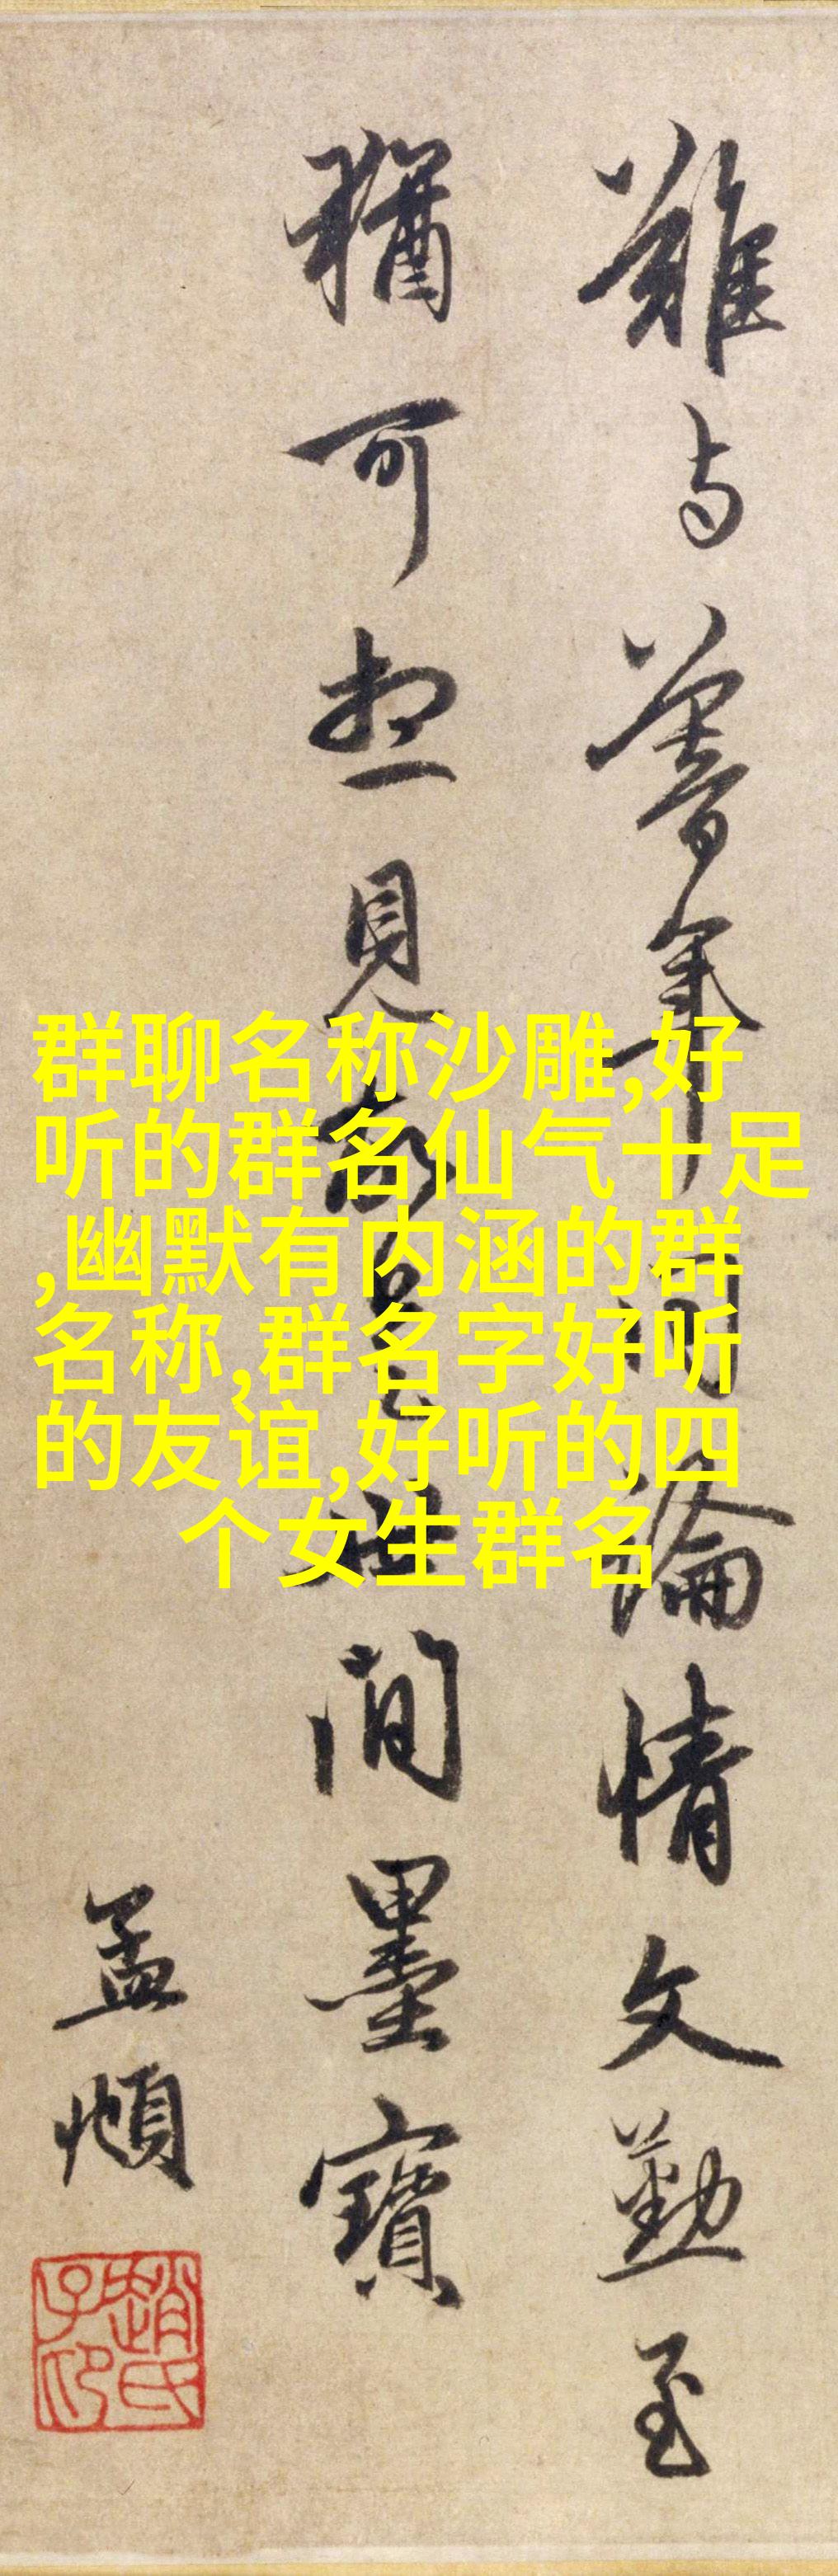 難与暮年同論情文勤至
猶可想見故是世間墨寶
孟頫
趙氏子昂
群聊名称沙雕,好
听的群名仙气十足
,幽默有内涵的群
名称,群名字好听
的友谊,好听的四
个女生群名